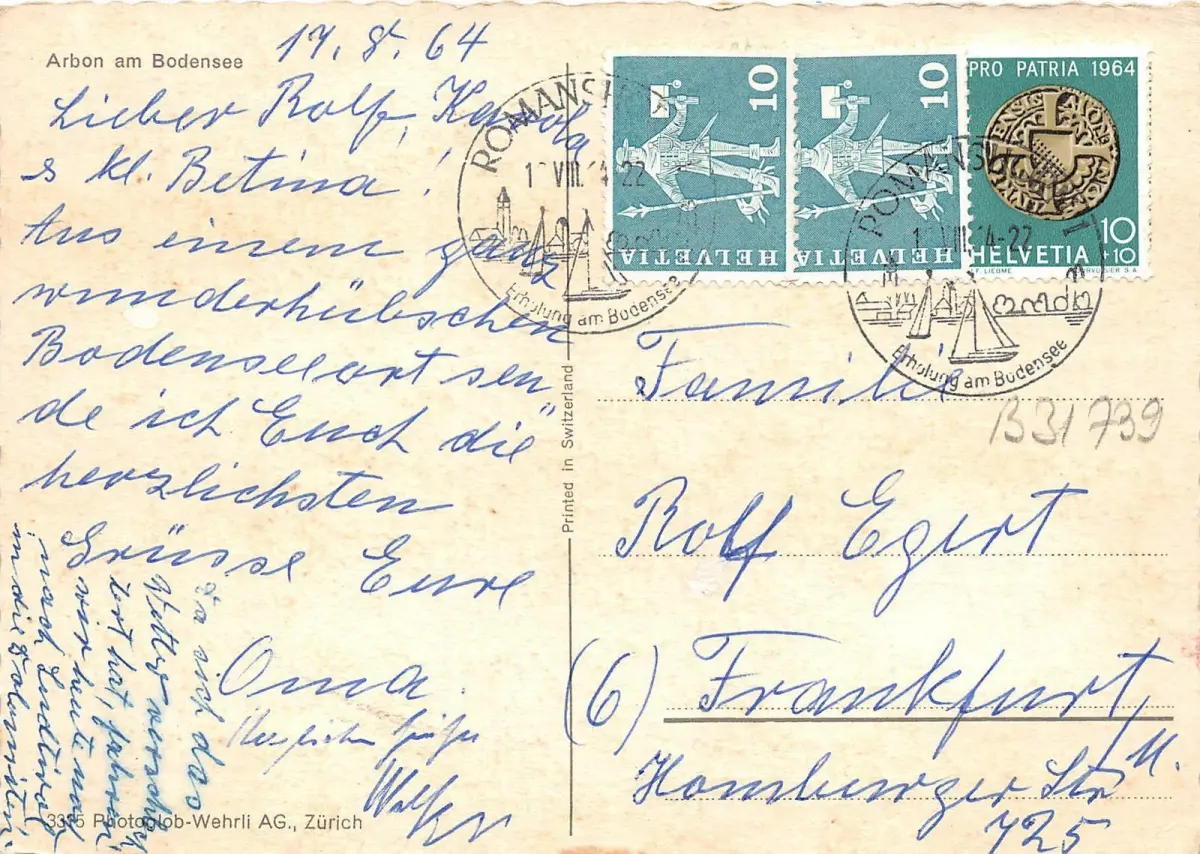 Arbon am Bodensee
17. 8. 64
Lieber Rolf, Karola
s kl. Betina!
Aus einem ganz
wunderhübschen
Bodenseeort sen
de ich Euch die
herzlichsten
Grüsse Eure
Oma.
Herzlichen Grüße
Da sich das
Wetter
zert hat, fahren
wir heute noch
nach Südtirol
in die Dolomiten.
3315 Photoglob-Wehrli AG., Zürich
Printed in Switzerland
10
HELVETIA
10
HELVETIA
PRO PATRIA 1964
10
+10
HELVETIA
F. LIEBME
COURVOISIER S A
ROMANSHORN
VIII. 64-22
Erholung am Bodensee
ROMANSHORN
VIII. 64-22
Erholung am Bodensee
Familie
B31739
Rolf Egert
(6) Frankfurt,
M.
Homburger Str
725